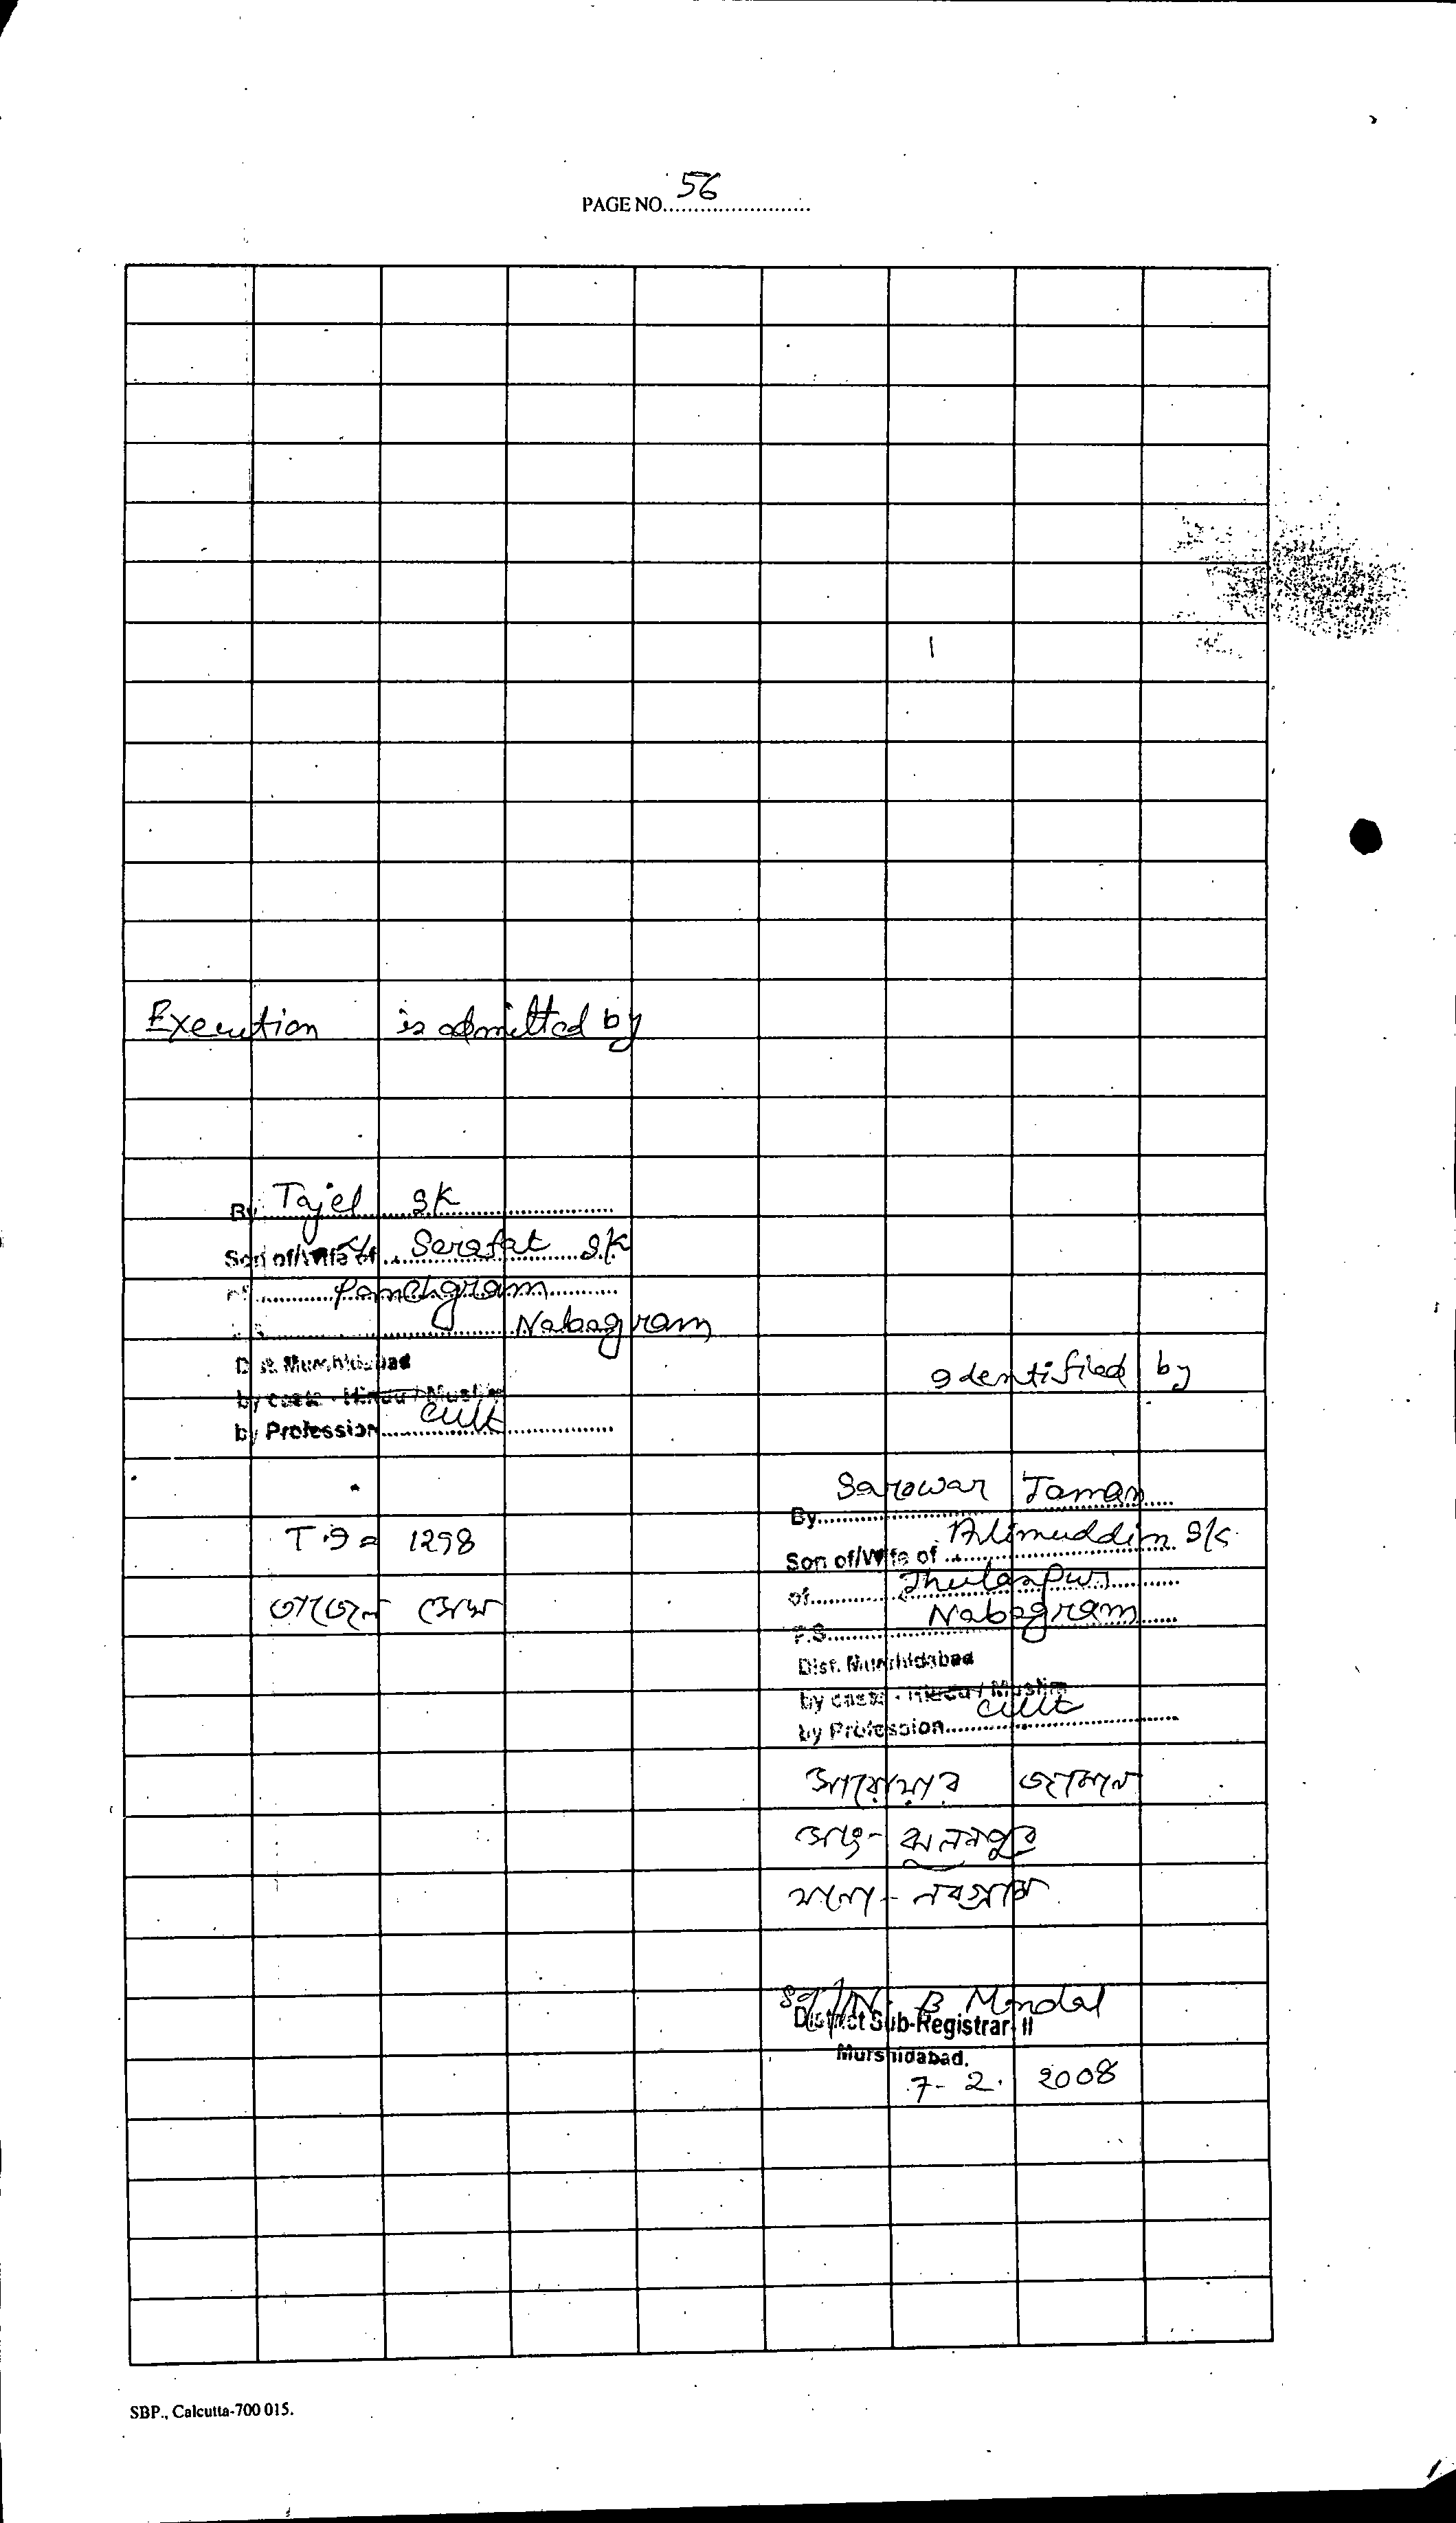 PAGE NO. 56
Execution is admitted by
By Tajel SK
Son of/Wife of Serafat SK
of Panchgram
Nabagram
Dist. Murshidabad
by caste - Hindu / Muslim
by Profession Cult
T.I = 1298
তাজেল সেখ
Identified by
By Sarowar Jaman
Son of/Wife of Alimuddin Sk
of Jhulanpur
P.S. Nabagram
Dist. Murshidabad
by caste - Hindu / Muslim
by Profession Cult
সারোয়ার জামান
সাং- ঝুলনপুর
থানা - নবগ্রাম
Sd/N. B Mondal
District Sub-Registrar-II
Murshidabad.
7-2. 2008
SBP., Calcutta-700 015.